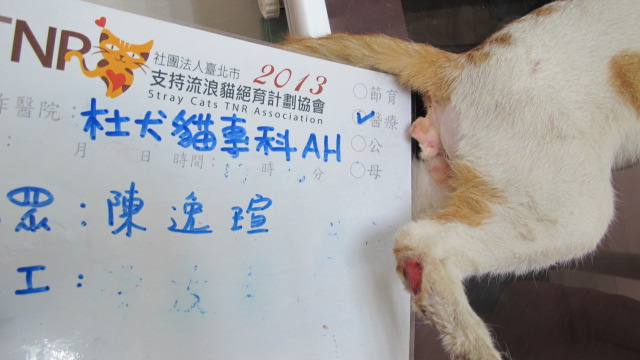 TNR
社團法人臺北市 2013
支持流浪貓絕育計劃協會
Stray Cats TNR Association
○節育
作醫院：杜犬貓專科AH ✓醫療
：　月　日 時間：　時　分 ○公
○母
眾：陳逸瑄
工：